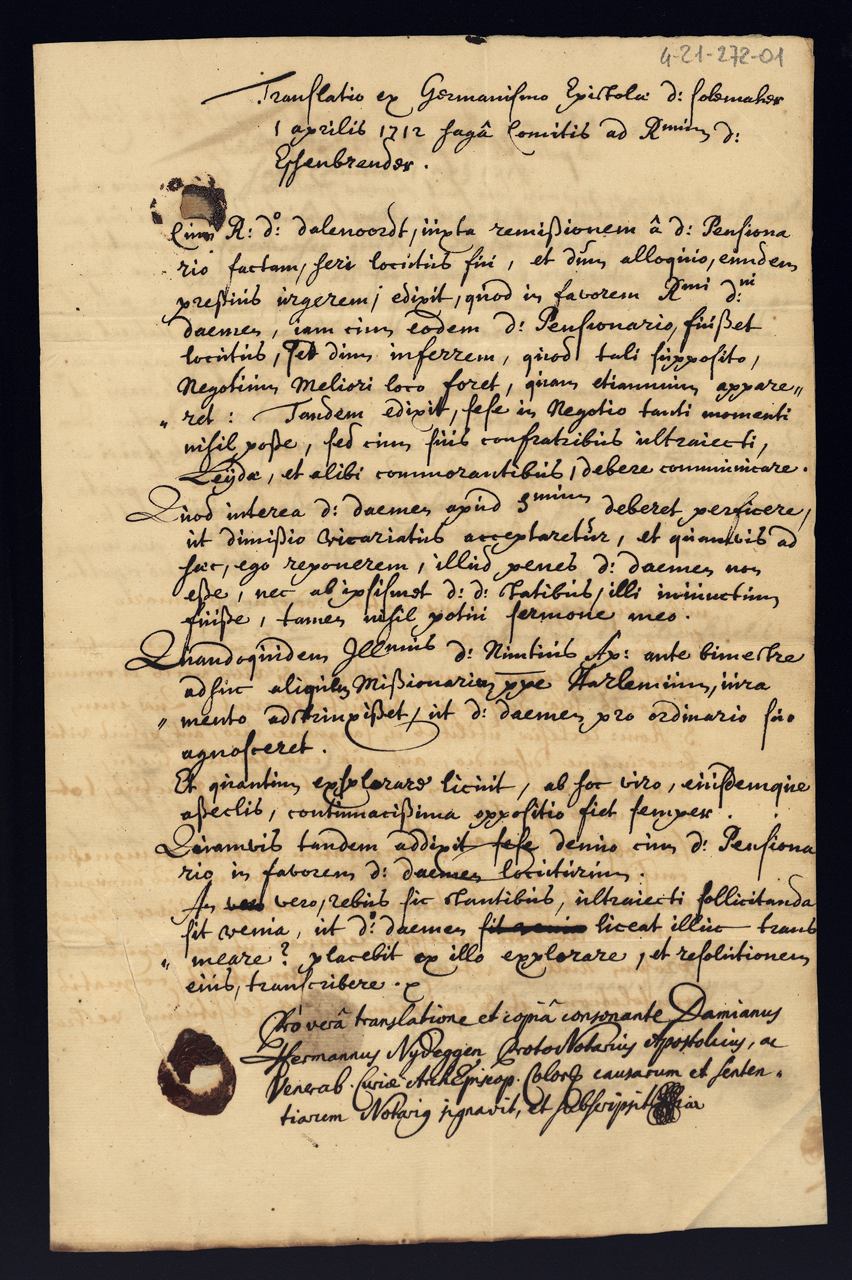 4-21-272-01
Translatio ex Germanismo Epistolæ d: Solemaker
1 aprilis 1712 hagâ Comitis ad Rmum d:
Essenbrander.
Cum R: d.o dalenoordt, iuxta remissionem â d: Pensiona
rio factam, heri locutus fui, et dum alloquio, eundem
pressius urgerem, edixit, quod in favorem Rmi dni
daemen, iam cum eodem d: Pensionario, fuisset
locutus, sed dum inferrem, quod tali supposito,
Negotium meliori loco foret, quam etiamnum appare„
„ ret: Tandem edixit, sese in Negotio tanti momenti
nihil posse, sed cum suis confratribus ultraiecti,
Leijdæ, et alibi commorantibus, debere communicare.
Quod interea d: daemen apud Smum deberet perficere,
ut dimissio vicariatus acceptaretur, et quamvis ad
huc, ego reponerem, illud penes d: daemen non
esse, nec ab ipsismet d: d: statibus, illi iniunctum
fuisse, tamen nihil potui sermone meo.
Quandoquidem Illmus d: Nuntius Ap: ante bimestre
adhuc aliquem Missionarium ppe Harlemum, iura
„ mento adstrinxisset, ut d: daemen pro ordinario suo
agnosceret.
Et quantum explorare licuit, ab hoc viro, eiusdemque
asseclis, contumacissima oppositio fiet semper.
Quamvis tandem addixit sese denuo cum d: Pensiona
rio in favorem d: daemen locuturum.
An vero, rebus sic stantibus, ultraiecti sollicitanda
sit venia, ut d.o daemen liceat illuc trans
„ meare? placebit ex illo explorare, et resolutionem
eius, transcribere.
Pro verâ translatione et copiâ consonante Damianus
Hermannus Nydeggen ProtoNotarius Apostolicus, ac
Venerab. Curiæ ArchiEpiscop. Colon. causarum et senten„
tiarum Notarius signavit, et subscripsit